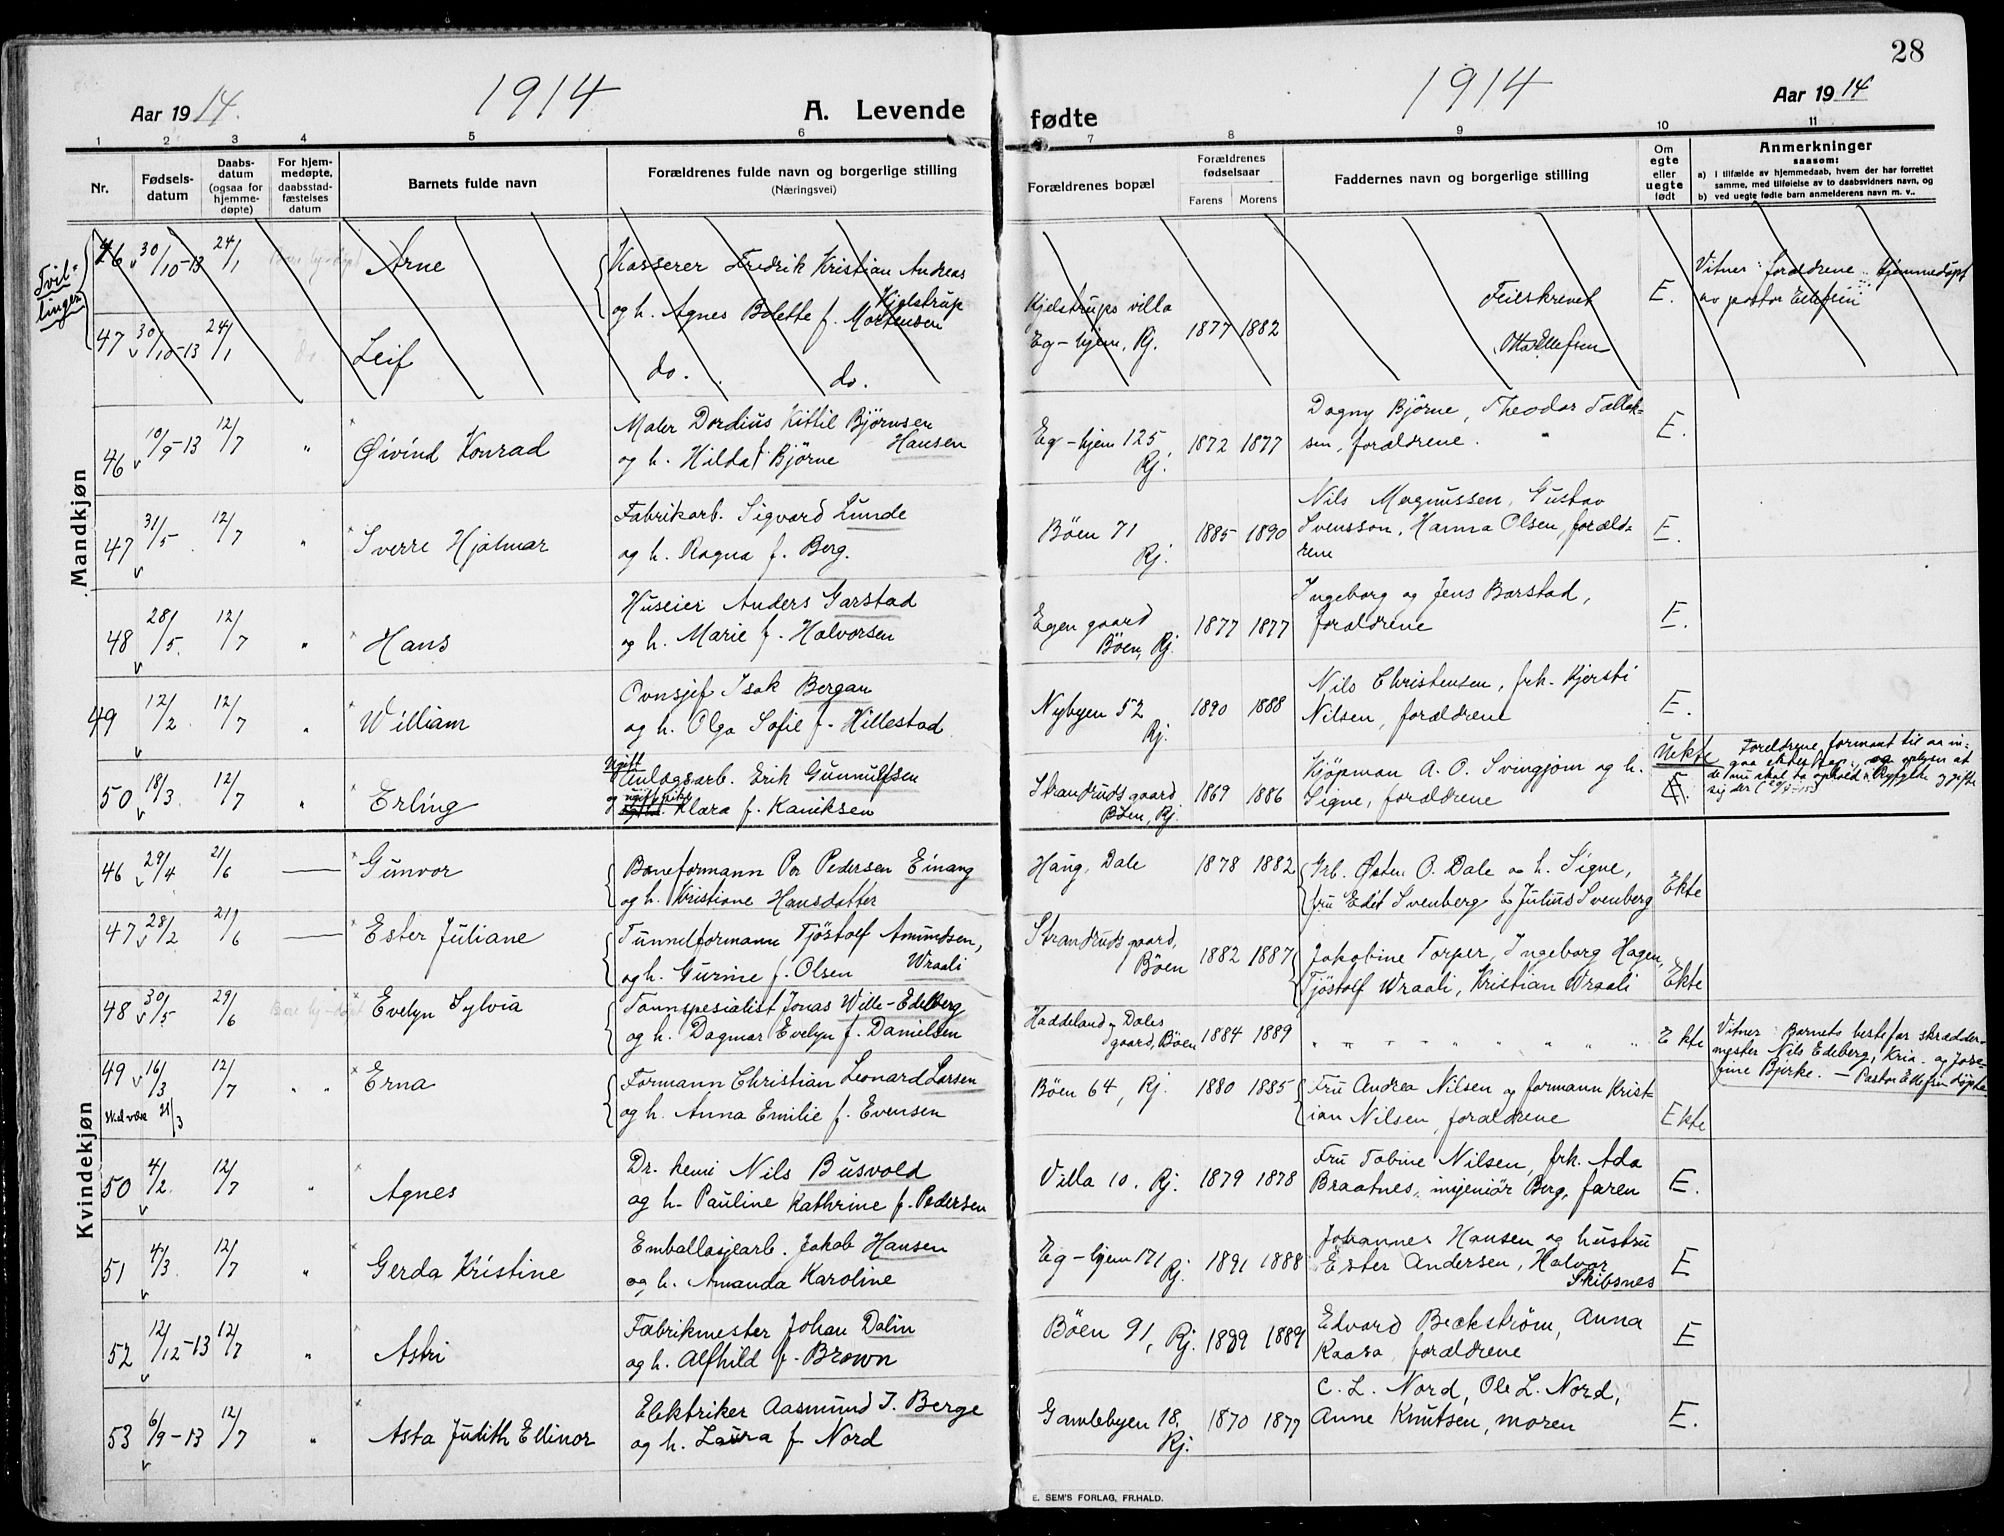 28
Aar 1914.
1914
A. Levende
fødte
1914
Aar 1914
1 2 3 4 5 6 7 8 9 10 11
Nr.
Fødsels-
datum
Daabs-
datum
(ogsaa for
hjemme-
døpte)
For hjem-
medøpte,
daabsstad-
fæstelses
datum
Barnets fulde navn
Forældrenes fulde navn og borgerlige stilling
(Næringsvei)
Forældrenes bopæl
Forældrenes
fødselsaar
Farens Morens
Faddernes navn og borgerlige stilling
Om
egte
eller
uegte
født
Anmerkninger
saasom:
a) I tilfælde av hjemmedaab, hvem der har forrettet
samme, med tilføielse av to daabsvidners navn, og
b) ved uegte fødte barn anmelderens navn m. v..
Tvil-
linger
Mandkjøn
46 30/10-13 24/1 Arne
Kasserer Fredrik Kristian Andreas
Kjelstrup
og h. Agnes Bolette f. Mortensen
Kjelstrups villa
Eg-hjem, Rj. 1877 1882
Feilskrevet
Otto Ellefsen
E.
Vitner: forældrene. Hjemmedøpt
av pastor Ellefsen
47 30/10-13 24/1 do Leif
do. do.
46 10/9-13 12/7 " Øivind Konrad
Maler Dordius Kittil Bjørnsen
Hansen
og h. Hilda f. Bjørne
Eg-hjem 125
Rj. 1872 1877
Dagny Bjørne, Theodor Tollak-
sen, forældrene.
E.
47 31/5 12/7 " Sverre Hjalmar
Fabrikarb. Sigvard Lunde
og h. Ragna f. Berg.
Bøen 71
Rj. 1885 1890
Nils Magnussen, Gustav
Svensson, Hanna Olsen, foræld-
rene
E.
48 28/5. 12/7 " Hans
Huseier Anders Garstad
og h. Marie f. Halvorsen
Egen gaard
Bøen, Rj. 1877 1877
Ingeborg og Jens Barstad,
forældrene
E.
49 12/2 12/7 " William
Ovnsjef Isak Bergan
og h. Olga Sofie f. Hillestad
Nybyen 52
Rj. 1890 1888
Nils Christensen, frk. Kjersti
Nilsen, forældrene
E.
50 18/3 12/7 " Erling
Ugift
Anlægsarb. Erik Gunnulfsen
og ugift pike Klara f. Kaniksen
Strandrudsgaard
Bøen, Rj. 1869 1886
Kjøpman A. O. Svingjom og h.
Signe, forældrene
Uekte
E.
Foreldrene formant til aa in-
gaa ekteskap, og oplysn at
de nu skal ta ophold i Ryfylke og gifte
sig der
Kvindekjøn
46 29/4 21/6 — Gunvor
Baneformann Per Pedersen Einang
og h. Kristiane Hansdatter
Haug, Dale 1878 1882
Grb. Østen O. Dale og h. Signe,
fru Edit Svenberg og Julius Svenberg
Ekte
47 28/2 21/6 — Ester Juliane
Tunnelformann Tjöstolf Amundsen,
Wraali
og h. Gurine f. Olsen
Strandrudsgaard,
Böen 1882 1887
Jakobine Torper, Ingeborg Hagen,
Tjöstolf Wraali, Kristian Wraali
Ekte
48 30/5 29/6 Evelyn Sylvia
Tannspesialist Jonas Wille-Edelberg
og h. Dagmar Evelyn f. Danielsen
Haddeland og Dales
gaard, Böen 1884 1889
" " " " " " " "
Ekte
Vitner: Barnets bestefar skrædder-
mester Nils Edeberg, Kria. og Jose-
fine Bjerke. — Pastor Ellefsen døpte
49 16/3 12/7 " " Erna
Skal være 31/3
Formann Christian Leonard Larsen
og h. Anna Emilie f. Evensen
Böen 64, Rj. 1880 1885
Fru Andrea Nilsen og formann Krist-
ian Nilsen, forældrene
Ekte
50 4/2. 12/7 " Agnes
Dr. kemi Nils Busvold
og h. Pauline Kathrine f. Pedersen
Villa 10. Rj. 1879 1878
Fru Tobine Nilsen, frk. Ada
Braatnes, ingeniør Berg, faren
E.
51 4/3. 12/7 " Gerda Kristine
Emballasjearb. Jakob Hansen
og h. Amanda Karoline
Eg-hjem 171
Rj. 1891 1888
Johannes Hansen og hustru
Ester Andersen, Halvor
Skibsnes
E
52 12/12-13 12/7 " Astri
Fabrikmester Johan Dalin
og h. Alfhild f. Brown
Böen 91, Rj. 1889 1889
Edvard Beckström, Anna
Kaasa, forældrene
E
53 6/9-13 12/7 " Asta Judith Ellinor
Elektriker Aasmund T. Berge
og h. Laura f. Nord
Gamlebyen 18,
Rj. 1870 1877
C. L. Nord, Ole L. Nord,
Anne Knutsen, moren
E.
E. SEM'S FORLAG, FR.HALD.